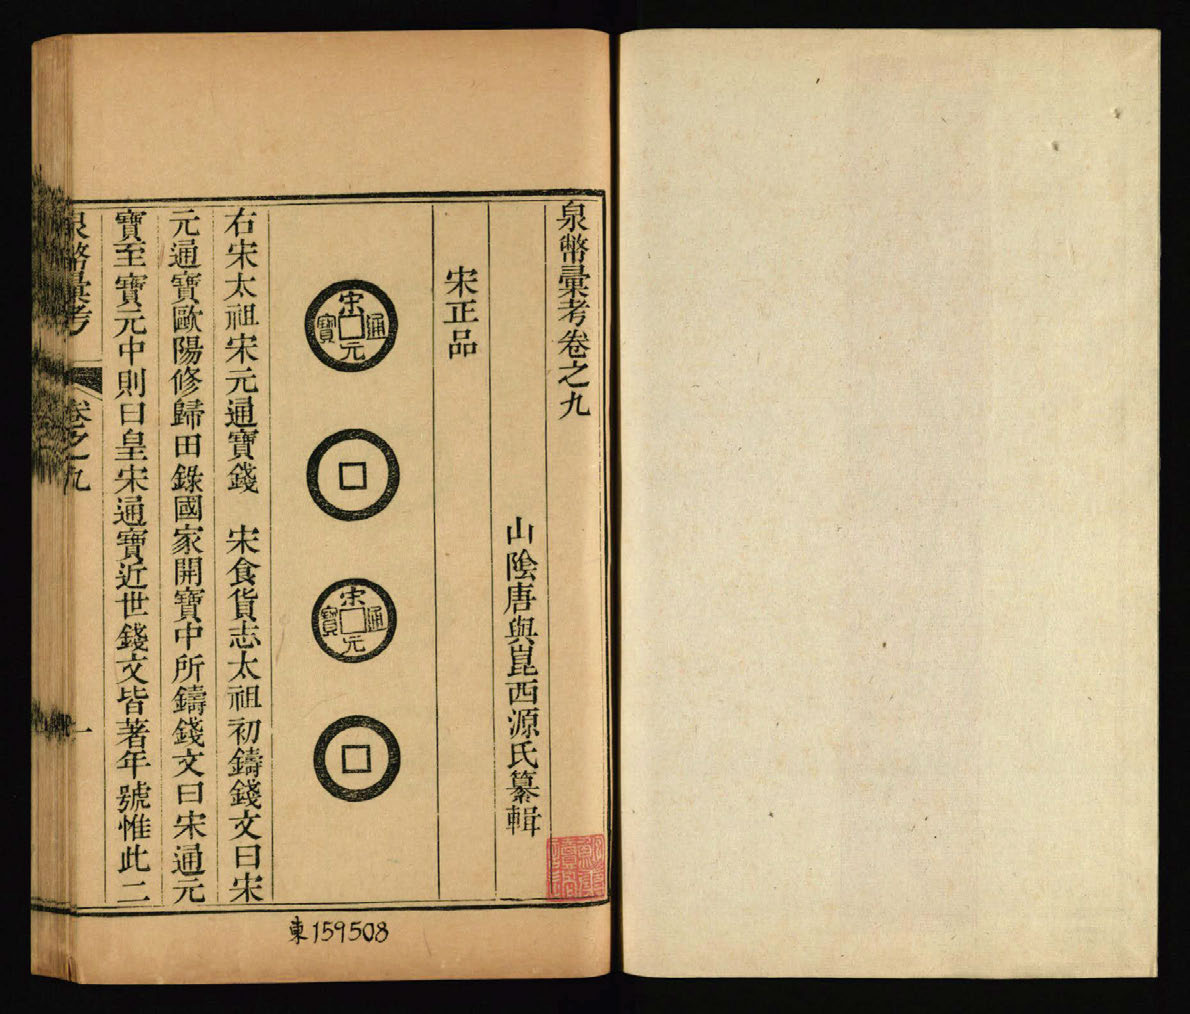 泉幣彙考卷之九
山陰唐與崑西源氏纂輯
宋正品
宋元通寶
宋元通寶
右宋太祖宋元通寶錢　宋食貨志太祖初鑄錢文曰宋
元通寶歐陽修歸田錄國家開寶中所鑄錢文曰宋通元
寶至寶元中則曰皇宋通寶近世錢文皆著年號惟此二
泉幣彙考　卷之九　一
東159508